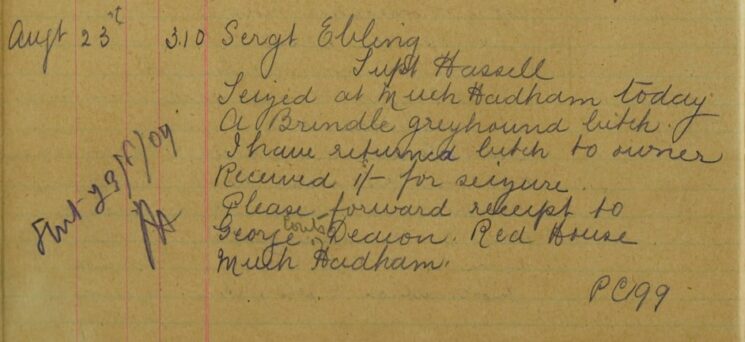 Augt 23rd 3.10 Sergt Ebling
Supt Hassell
Seized at Much Hadham today
A Brindle greyhound bitch.
I have returned bitch to owner
Received 1/- for seizure.
Please forward receipt to
George Deacon. Red House
Much Hadham.
PC 99
Sent 23/8/09